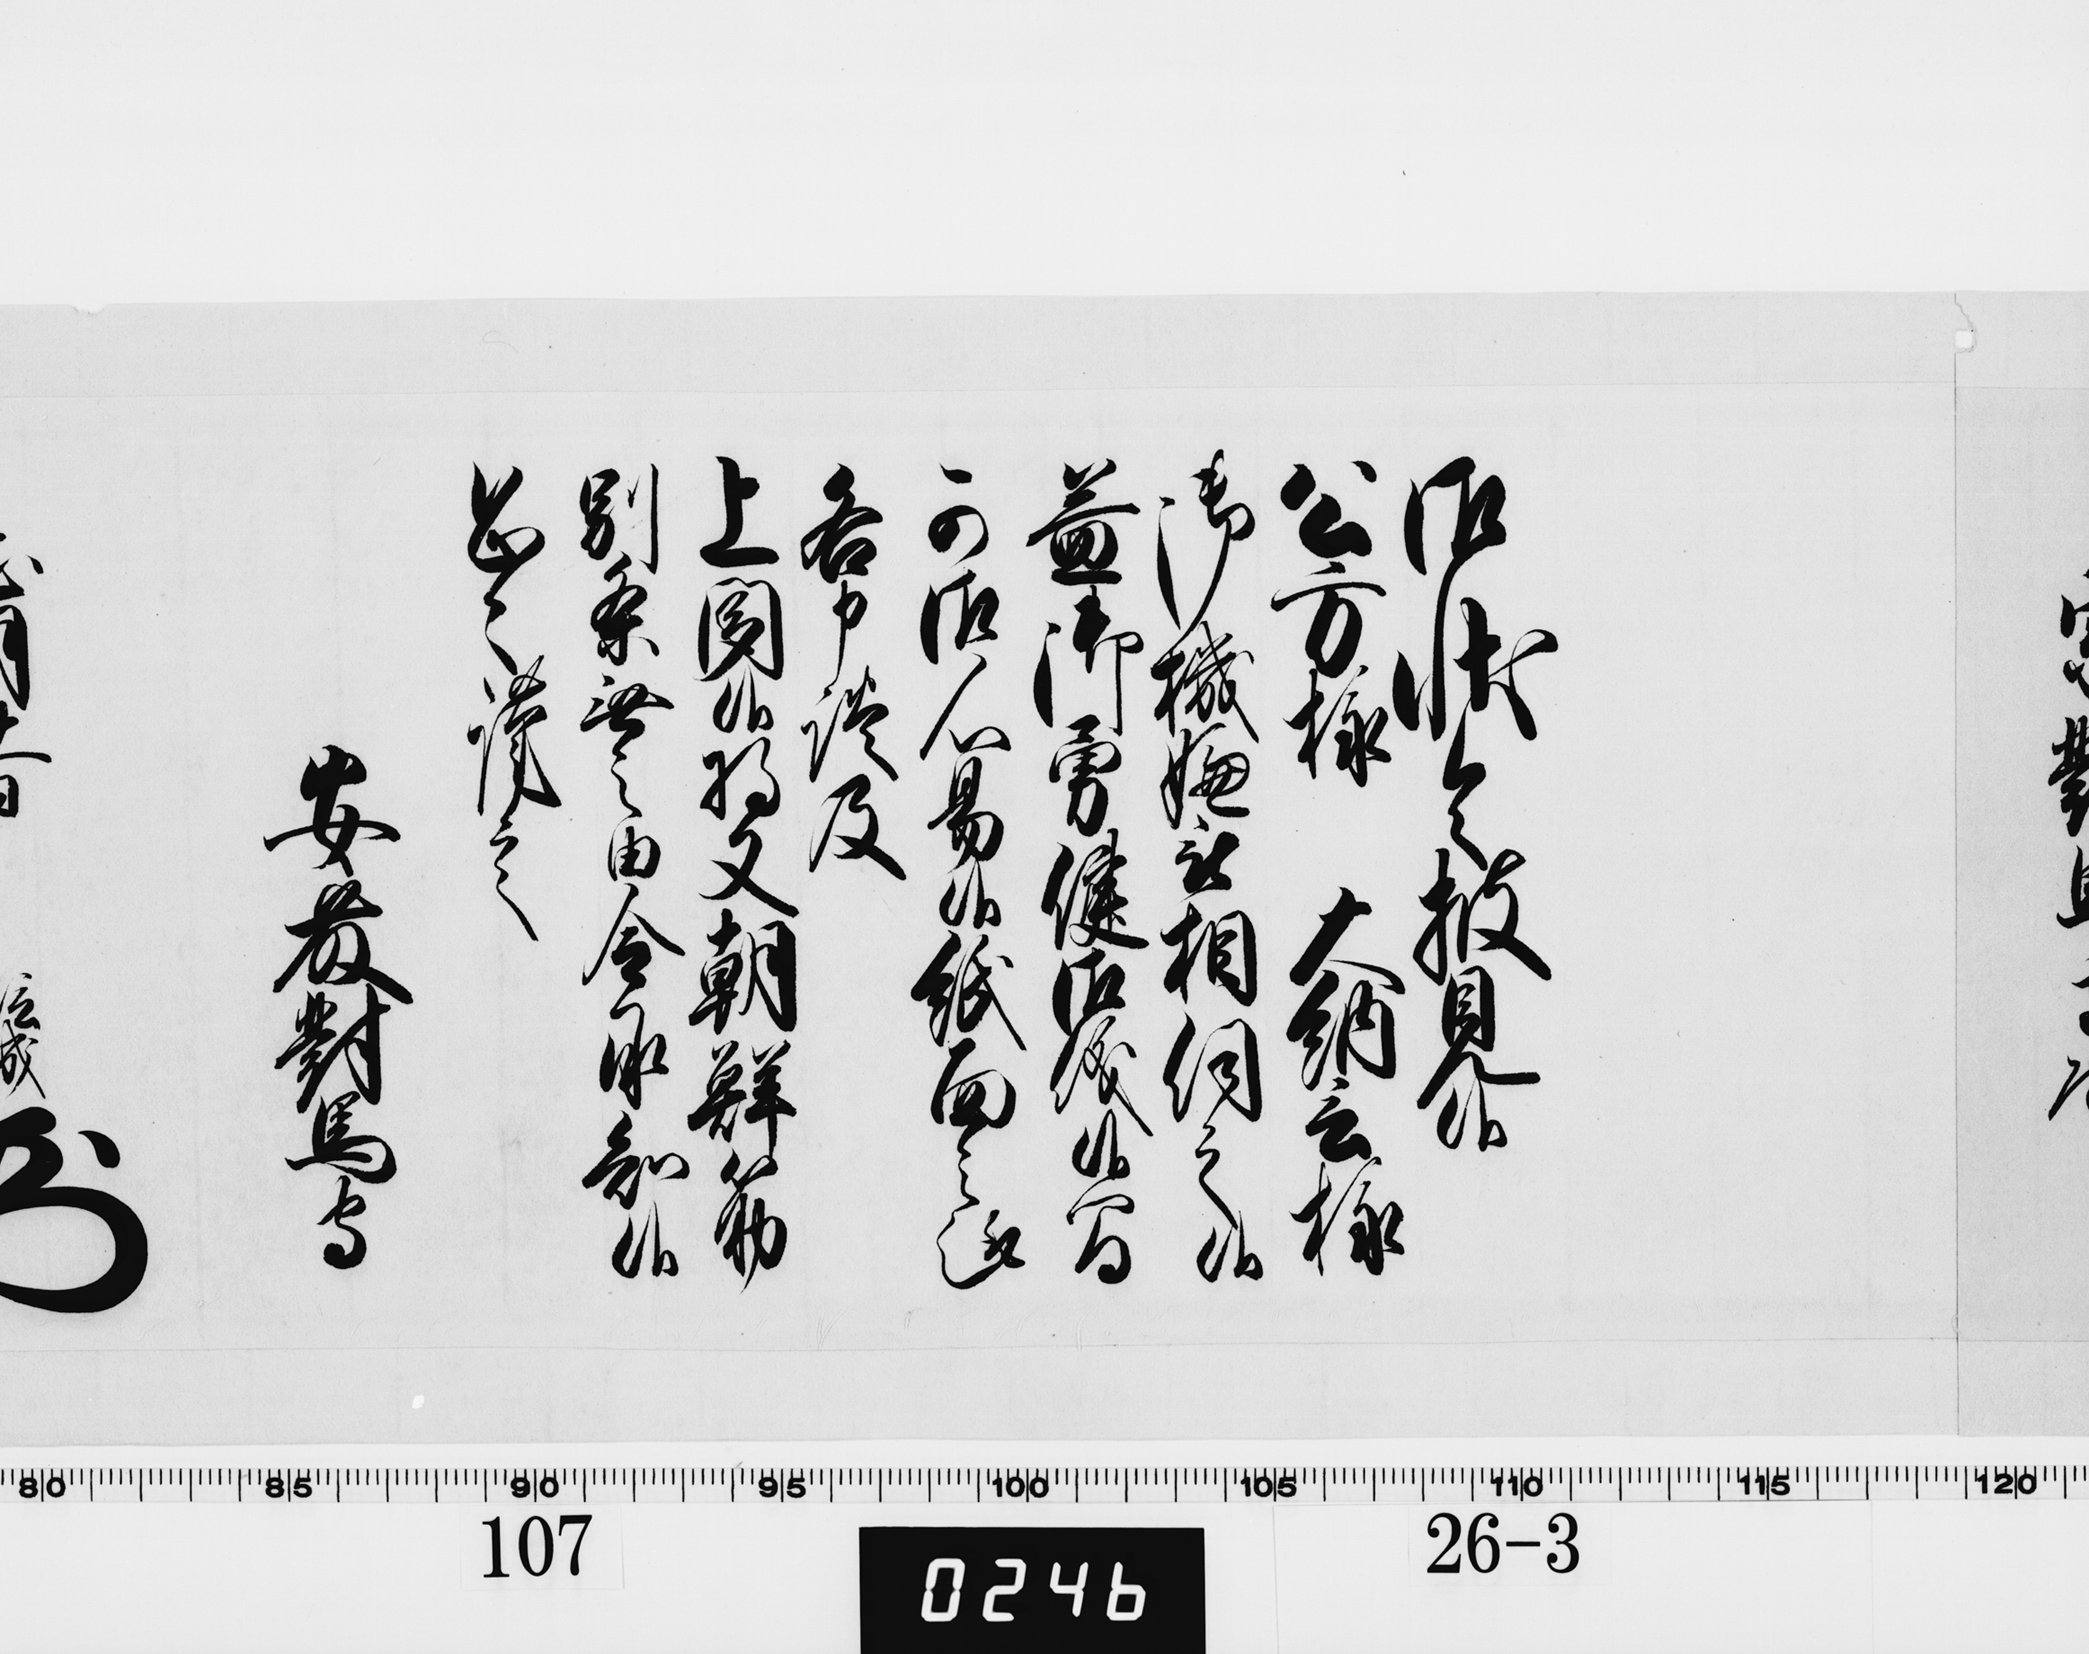 宗對馬守
御状令披見候
公方様　大納言様
御機嫌被相伺之候
益御勇健御座候間
可御心易候紙面之趣
各申談及
上聞候将又朝鮮筋
別条無之由令承知候
恐々謹言
安藤對馬守
月　日
信成
80 85 90 95 100 105 110 115 120
107
0246
26-3